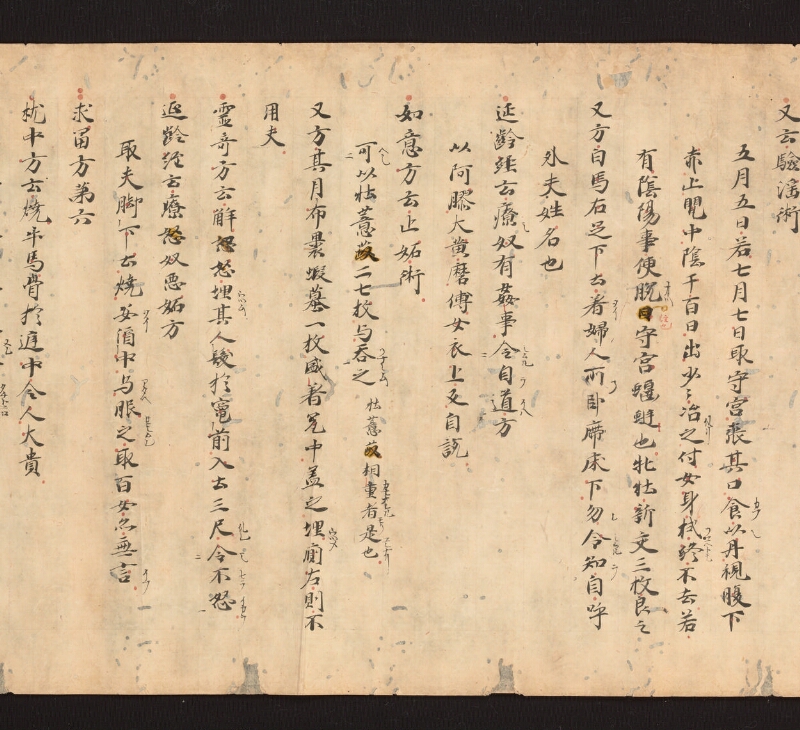 又云驗淫術
五月五日若七月七日取守宮張其口食以丹視腹下
赤止罌中陰干百日出少〻冶之付女身拭終不去若
有陰陽事便脱日守宮蝘蜓也牝牡新交三枚良之
又方白馬右足下土著婦人所卧席床下勿令知自呼
外夫姓名也
延齡經云療奴有姦事令自道方
以阿膠大黄磨傅女衣上反自説
如意方云止妬術
可以牡薏苡二七枚与吞之 牡薏苡相重者是也
又方其月布裹蝦蟇一枚盛著瓮中盖之埋廁左則不
用夫
靈奇方云解怒怒埋其人髮於竈前入土三尺令不怒
延齡經云療怒奴惡妬方
取夫脚下土燒安酒中与服之取百女亦無言
求冨方第六
枕中方云燒牛馬骨於遅中令人大貴